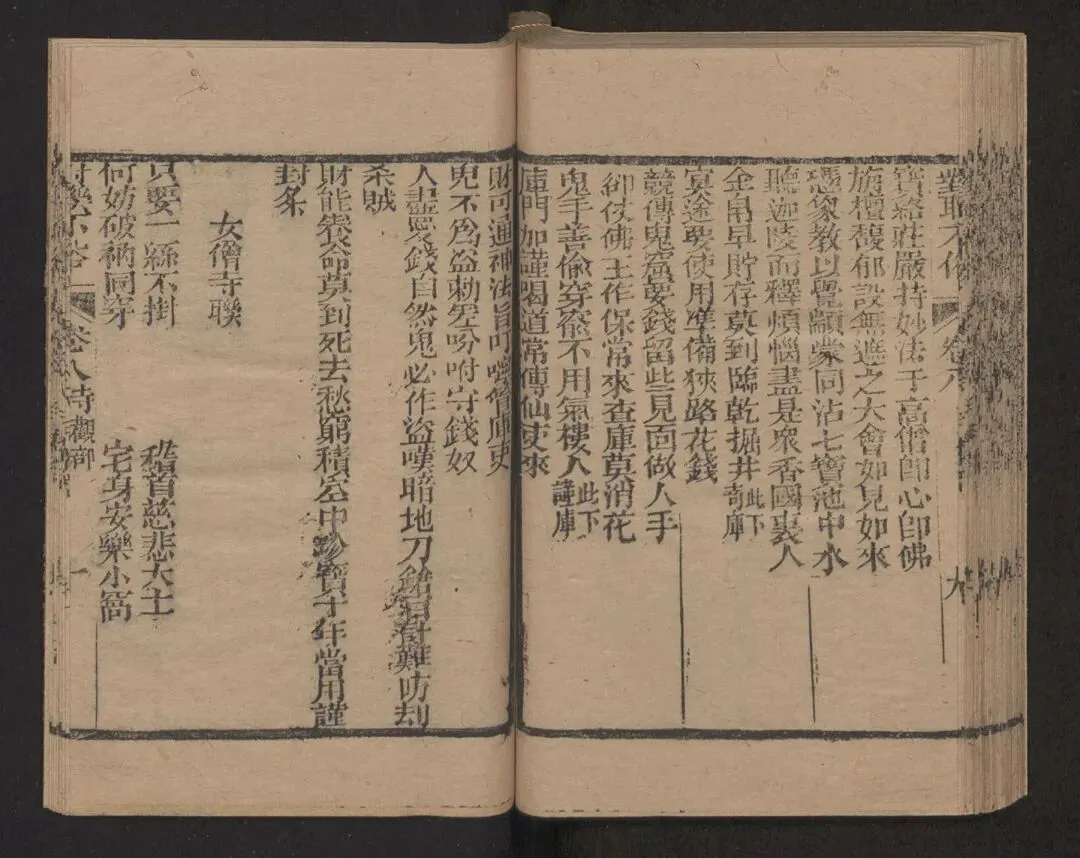 對聯不俗 卷八 九
寶路莊嚴持妙法于高僧卽心卽佛
旃檀馥郁設無遮之大會如見如來
憑像教以覺顓蒙同沾七寶池中水
聽迦陵而釋煩惱盡是衆香國裏人
金帛早貯存莫到臨乾掘井此下寄庫
冥途要使用準備狹路花錢
競傳鬼窩要錢留些見面做人手
卻仗佛王作保常來查庫莫消花
鬼手善偷穿窬不用氣樓人此下諱庫
庫門加謹喝道常傳仙吏來
財可通神法旨叮嚀管庫吏
鬼不爲盜勅差吩咐守錢奴
人盡要錢自然鬼必作盜嘆暗地刀難防刦
殺賊
財能喪命莫到死去愁窮積空中珍寶十年當用謹
封条
女僧寺聯
只要一絲不掛 稽首慈悲大士
何妨破衲同穿 宅身安樂小窩
卷八寺觀